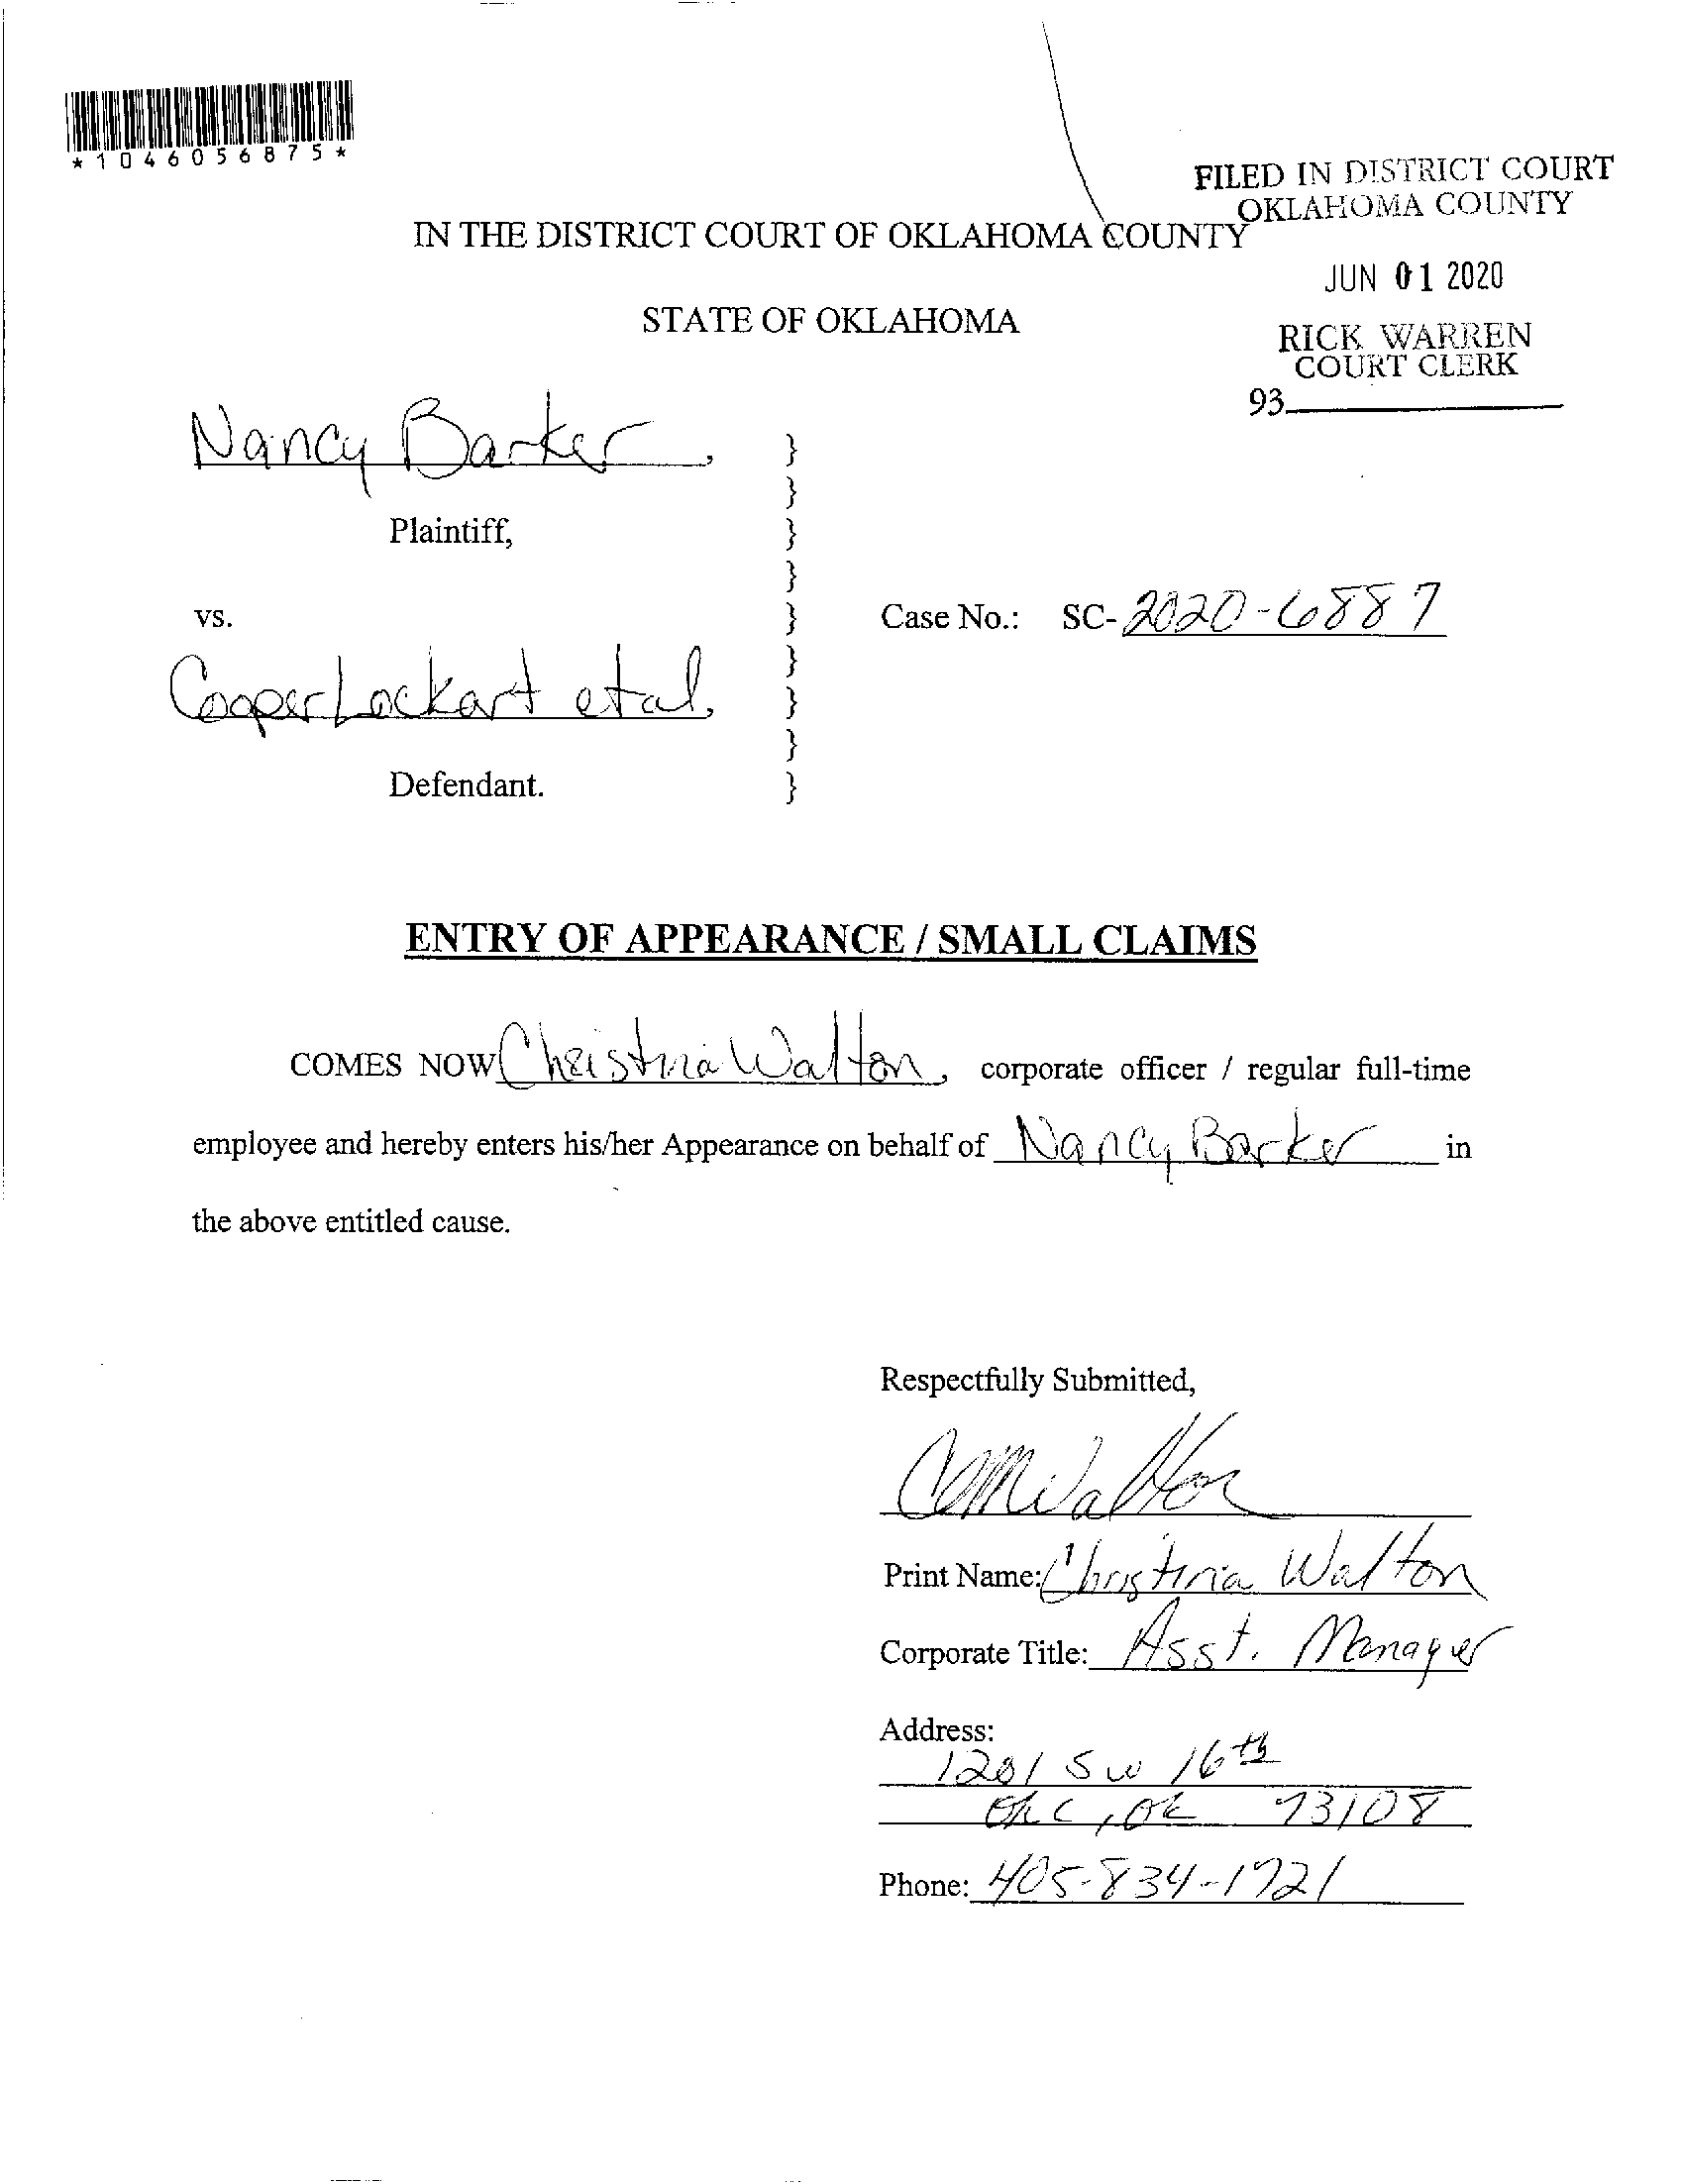 *1046056875*
FILED IN DISTRICT COURT
OKLAHOMA COUNTY
IN THE DISTRICT COURT OF OKLAHOMA COUNTY
JUN 01 2020
STATE OF OKLAHOMA
RICK WARREN
COURT CLERK
93
Nancy Barker,
}
}
Plaintiff, }
}
vs. } Case No.: SC-2020-6887
}
Cooper Lockart et al, }
}
Defendant. }
ENTRY OF APPEARANCE / SMALL CLAIMS
COMES NOW Christina Walton, corporate officer / regular full-time
employee and hereby enters his/her Appearance on behalf of Nancy Barker in
the above entitled cause.
Respectfully Submitted,
CMWalton
Print Name: Christina Walton
Corporate Title: Asst. Manager
Address:
1201 SW 16th
OKC, OK 73108
Phone: 405-834-1721